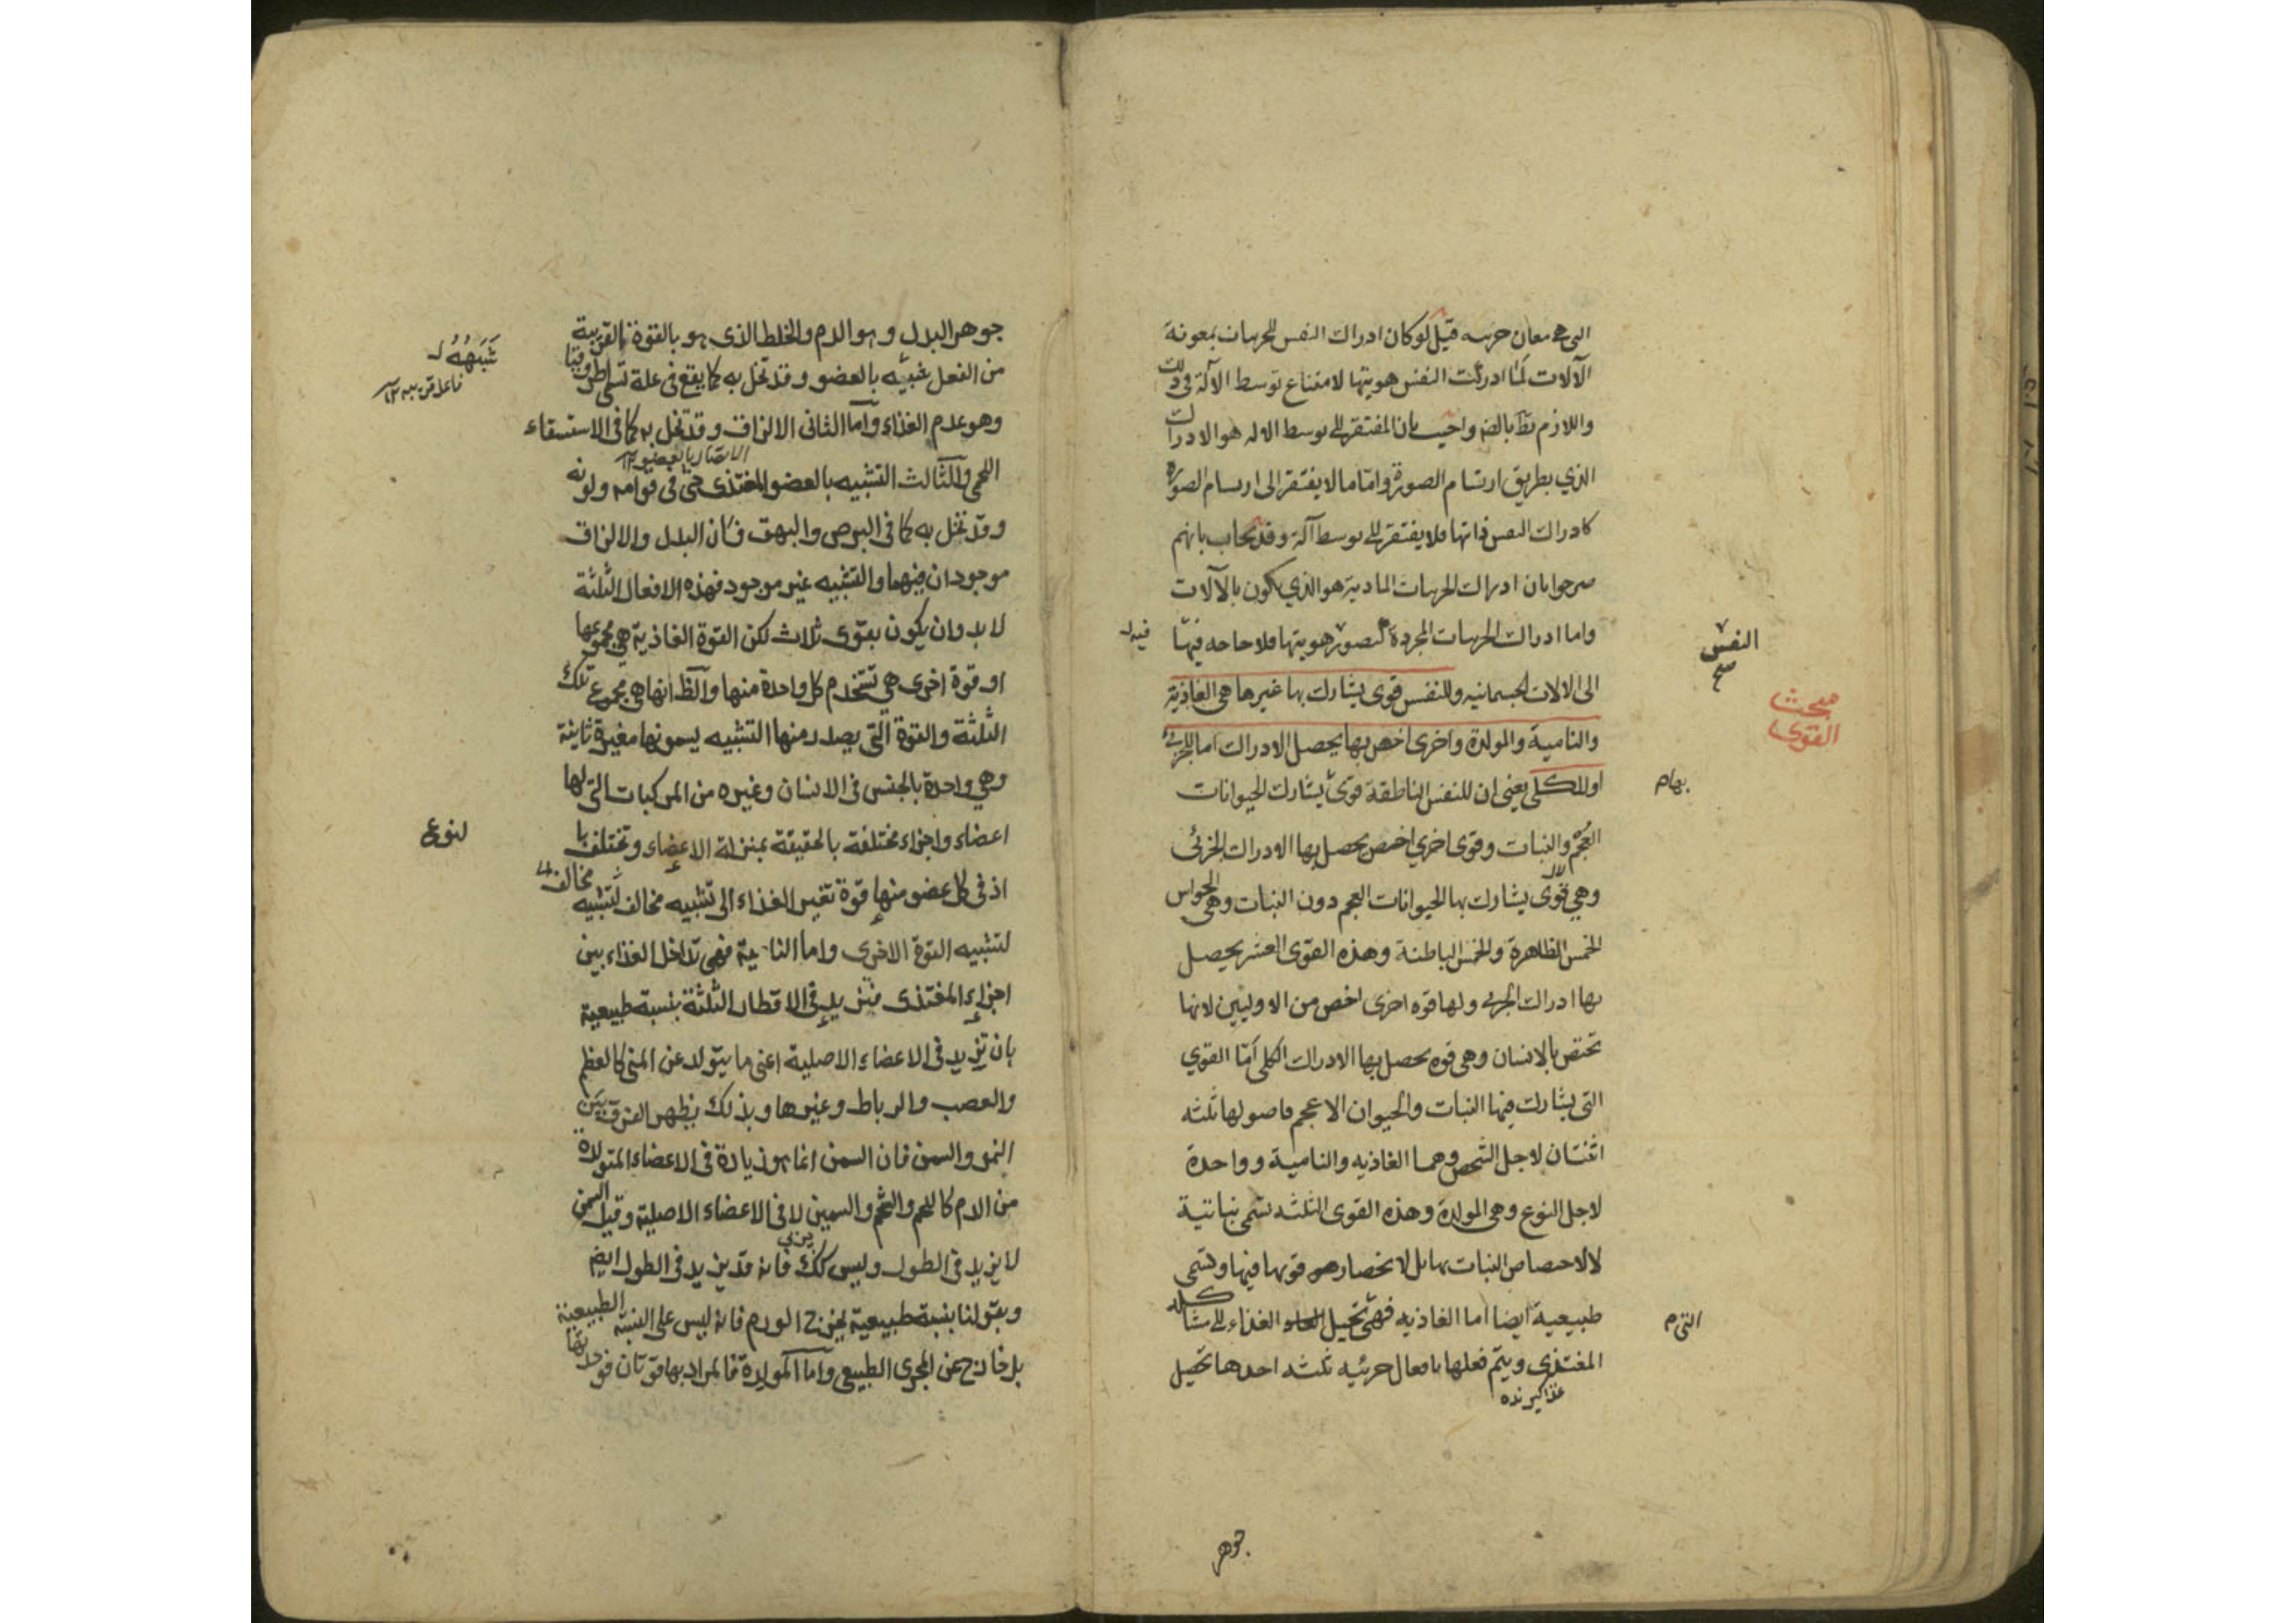 التى هى معان جزئيه قيل لوكان ادراك النفس للجزئيات بمعونة
الآلات لما ادركت النفس هويتها لامتناع توسط الآلة فى ذلك
واللازم بط بالضه واجيب بان المفتقر الى توسط الاله هو الادراك
الذي بطريق ارتسام الصورة واما ما لا يفتقر الى ارتسام الصورة
كادراك النفس ذاتها فلا يفتقر الى توسط آلة وقد يجاب بانهم
صرحوا بان ادراك الجزئيات المادية هو الذي يكون بالآلات
واما ادراك الجزئيات المجردة كتصور هويتها فلا حاجه فيها
فيه
النفس
صح
الى الالات الجسمانيه وللنفس قوى يشارك بها غيرها هى الغاذية
مبحث
القوى
والنامية والمولدة واخرى اخص بها يحصل الادراك اما للجزئى
او للكلى يعنى ان للنفس الناطقة قوى يشارك الحيوانات
بها م
العجم والنبات وقوى اخرى اخص يحصل بها الادراك الجزئى
وهى قوى يشارك بها الحيوانات العجم دون النبات وهى الحواس
الخمس الظاهرة والخمس الباطنة وهذه القوى العشر يحصل
بها ادراك الجزئى ولها قوه اخرى اخص من الاوليين لانها
تختص بالانسان وهى قوه يحصل بها الادراك الكلى اما القوي
التى يشارك فيها النبات والحيوان الاعجم فاصولها ثلثه
اثنتان لاجل الشخص وهما الغاذيه والنامية وواحدة
لاجل النوع وهى المولدة وهذه القوى الثلثه تسمى نباتية
لا لاختصاص النبات بها بل لانحصار قوتها فيها وتسمى
طبيعية ايضا اما الغاذيه فهى تحيل الغذاء الى مشاكلة
التى م
المغتذى ويتم فعلها بافعال جزئيه ثلثه احدها تحصيل
غذا كيرنده
جوهر
جوهر البدل وهو الدم والخلط الذى هو بالقوة القريبة
من الفعل شبيه بالعضو وقد تخل به كما يقع فى علة تسمى اطروفيا
شبهه
وهو عدم الغذاء واما الثانى الالزاق وقد تخل به كما فى الاستسقاء
الاتصال بالعضو ١٢
اللحمى والثالث التشبيه بالعضو المغتذى حتى فى قوامه ولونه
وقد تخل به كما فى البرص والبهق فان البدل والالزاق
موجودان فيهما والتشبيه غير موجود فهذه الافعال الثلثة
لا بد وان يكون بقوى ثلاث لكن القوة الغاذية هى مجموعها
او قوة اخرى هى تستخدم كل واحدة منها والظ انها هى مجموع تلك
الثلثة والقوة التى يصدر منها التشبيه يسمونها مغيرة ثانية
وهى واحدة بالجنس فى الانسان وغيره من المركبات التى لها
اعضاء واجزاء مختلفة بالحقيقة بمنزلة الاعضاء وتختلف با
لنوع
اذ فى كل عضو منها قوة تغير الغذاء الى تشبيه مخالف لتشبيه
مخالف
لتشبيه القوة الاخرى واما النامية فهى تداخل الغذاء بين
اجزاء المغتذى فتزيد فى الاقطار الثلثة بنسبة طبيعية
بان تزيد فى الاعضاء الاصلية اعنى ما يتولد عن المنى كالعظم
والعصب والرباط وغيرها وبذلك يظهر الفرق بين
النمو والسمن فان السمن انما هو زيادة فى الاعضاء المتولدة
من الدم كاللحم والشحم والسمين لا فى الاعضاء الاصلية وقيل السمن
لا يزيد فى الطول وليس كك فانه قد يزيد فى الطول ايضه
وبقولنا بنسبة طبيعية يخرج الورم فانه ليس على النسبة الطبيعية
بل خارج عن المجرى الطبيعى واما المولدة فالمراد بها قوتان فوحدتها